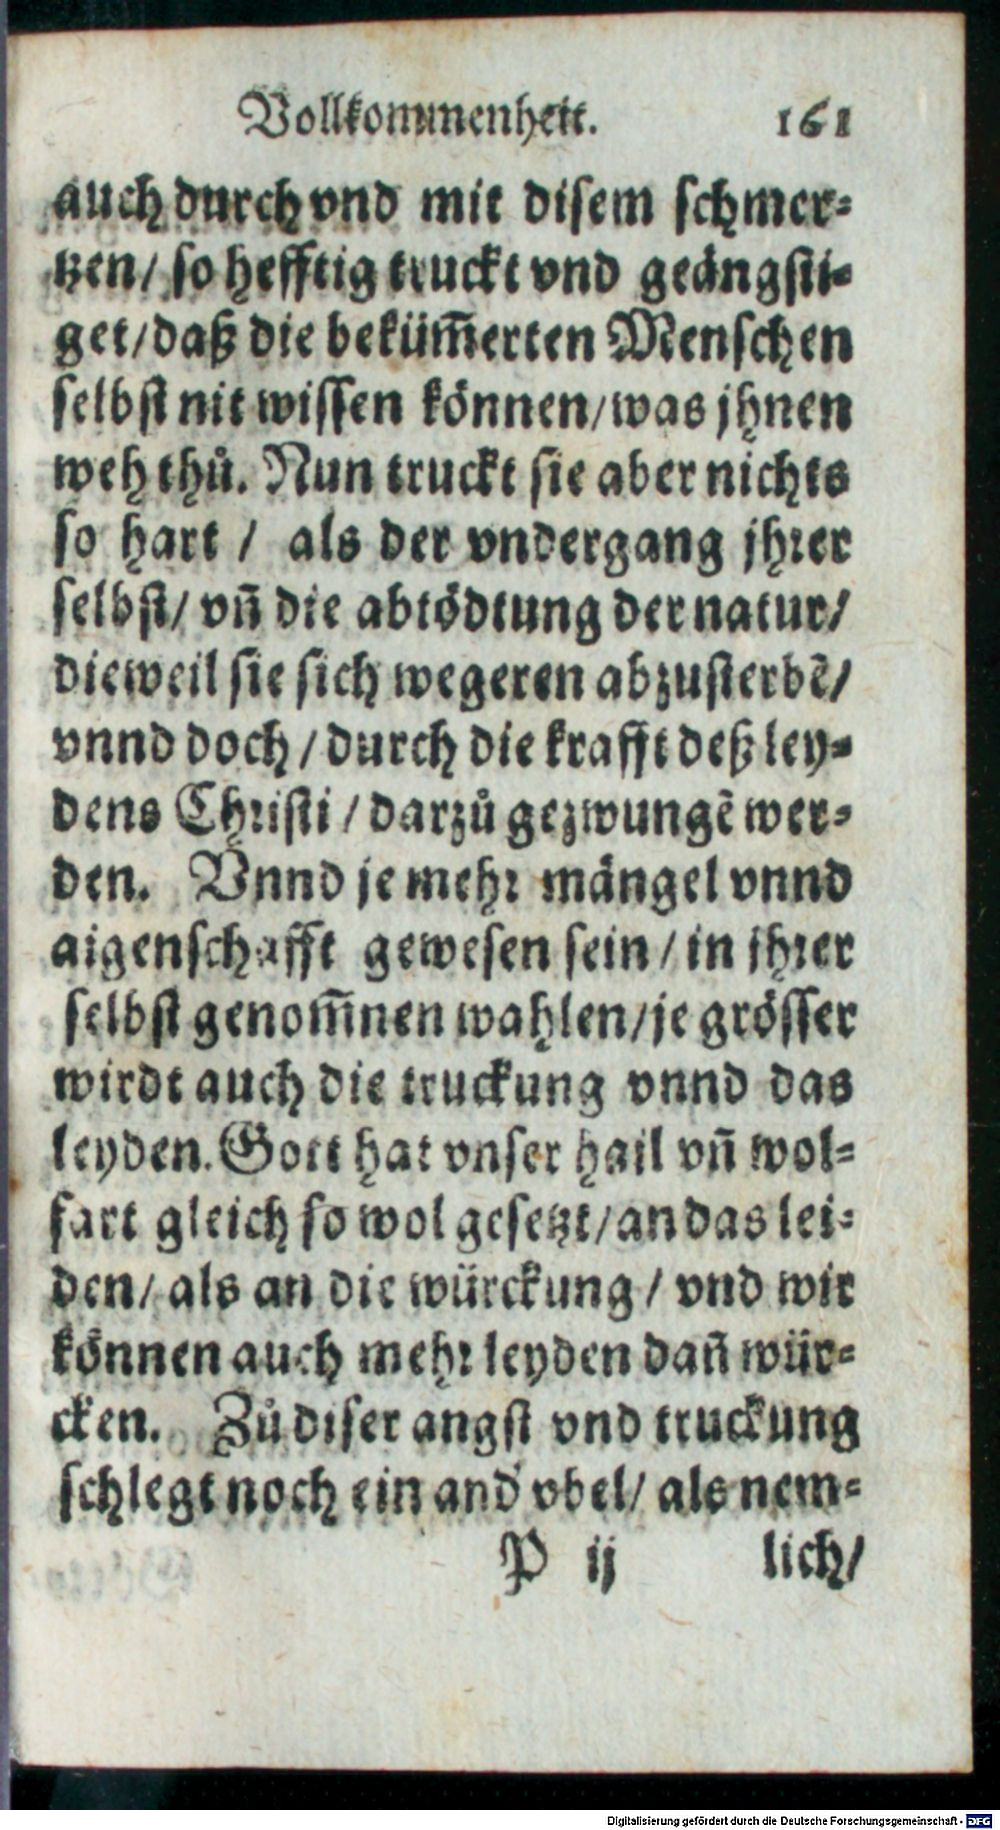 Vollkommenheit. 161
auch durch vnd mit disem schmer-
tzen/ so hefftig truckt vnd geängsti-
get/ daß die bekům̃erten Menschen
selbst nit wissen können/ was jhnen
weh thů. Nun truckt sie aber nichts
so hart / als der vndergang jhrer
selbst/ vñ die abtödtung der natur/
dieweil sie sich wegeren abzusterbẽ/
vnnd doch / durch die krafft deß ley-
dens Christi / darzů gezwungẽ wer-
den. Vnnd je mehr mängel vnnd
aigenschafft gewesen sein / in jhrer
selbst genom̃nen wahlen/ je grösser
wirdt auch die truckung vnnd das
leyden. Gott hat vnser hail vñ wol-
fart gleich so wol gesetzt/ an das lei-
den/ als an die würckung / vnd wir
können auch mehr leyden dañ wür-
cken. Zů diser angst vnd truckung
schlegt noch ein and' vbel/ als nem-
P ij lich/
Digitalisierung gefördert durch die Deutsche Forschungsgemeinschaft - DFG